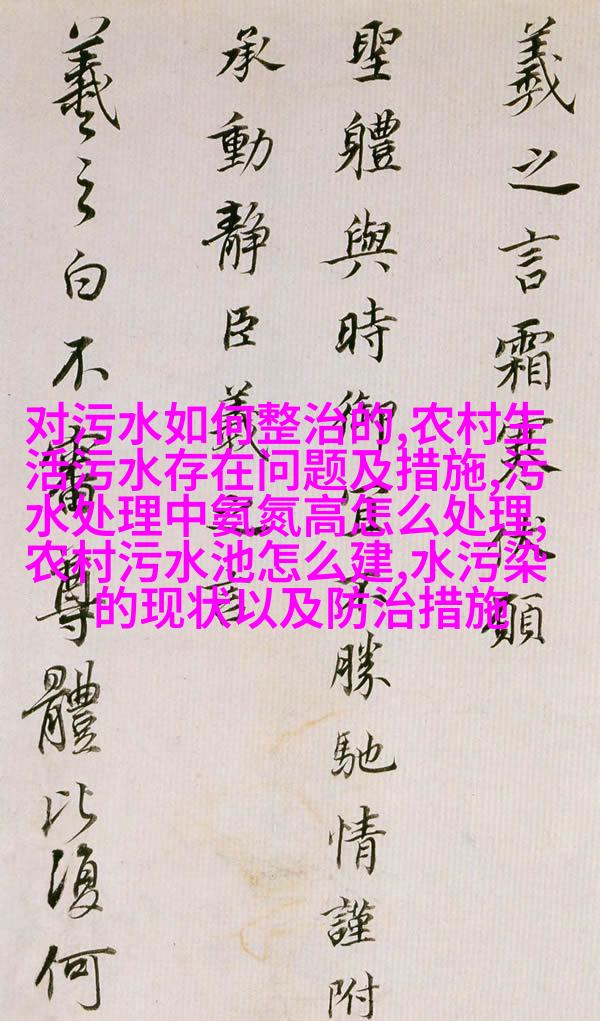 羲之言霜寒伏願
聖體與時御宜不勝馳情謹附
承動靜臣羲之言
羲之白不審尊體比復何
对污水如何整治的,农村生
活污水存在问题及措施,污
水处理中氨氮高怎么处理,
农村污水池怎么建,水污染
的现状以及防治措施